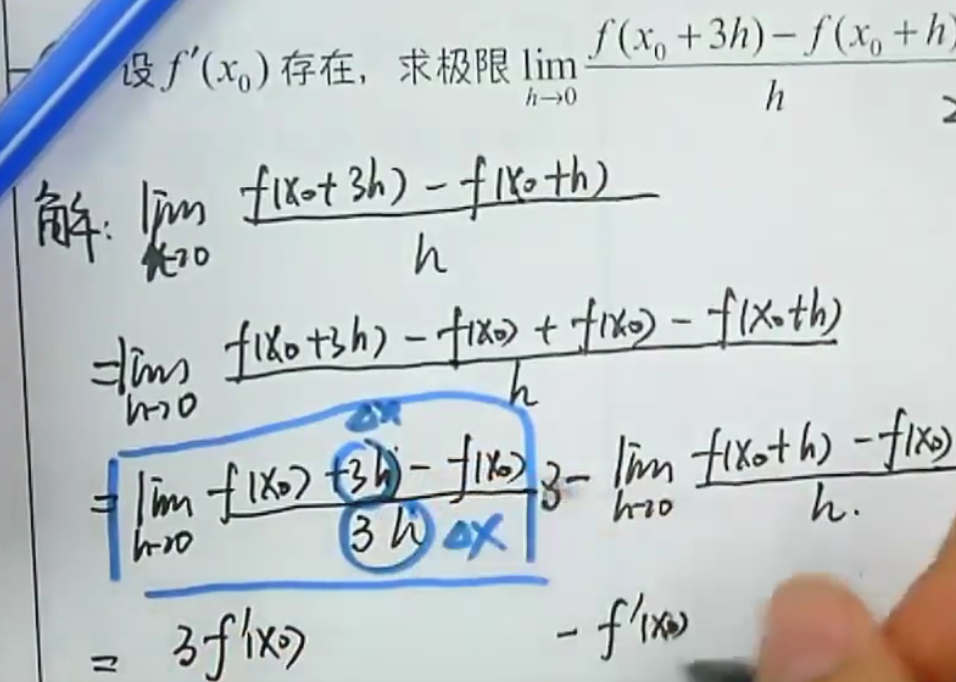 设 f′(x₀) 存在，求极限 lim h→0 (f(x₀+3h)−f(x₀+h))/h
解: lim h→0 (f(x₀+3h) − f(x₀+h))/h
= lim h→0 (f(x₀+3h) − f(x₀) + f(x₀) − f(x₀+h))/h
Δx
= lim h→0 (f(x₀) +3h) − f(x₀))/(3h) Δx · 3 − lim h→0 (f(x₀+h) − f(x₀))/h.
= 3f′(x₀) − f′(x₀)